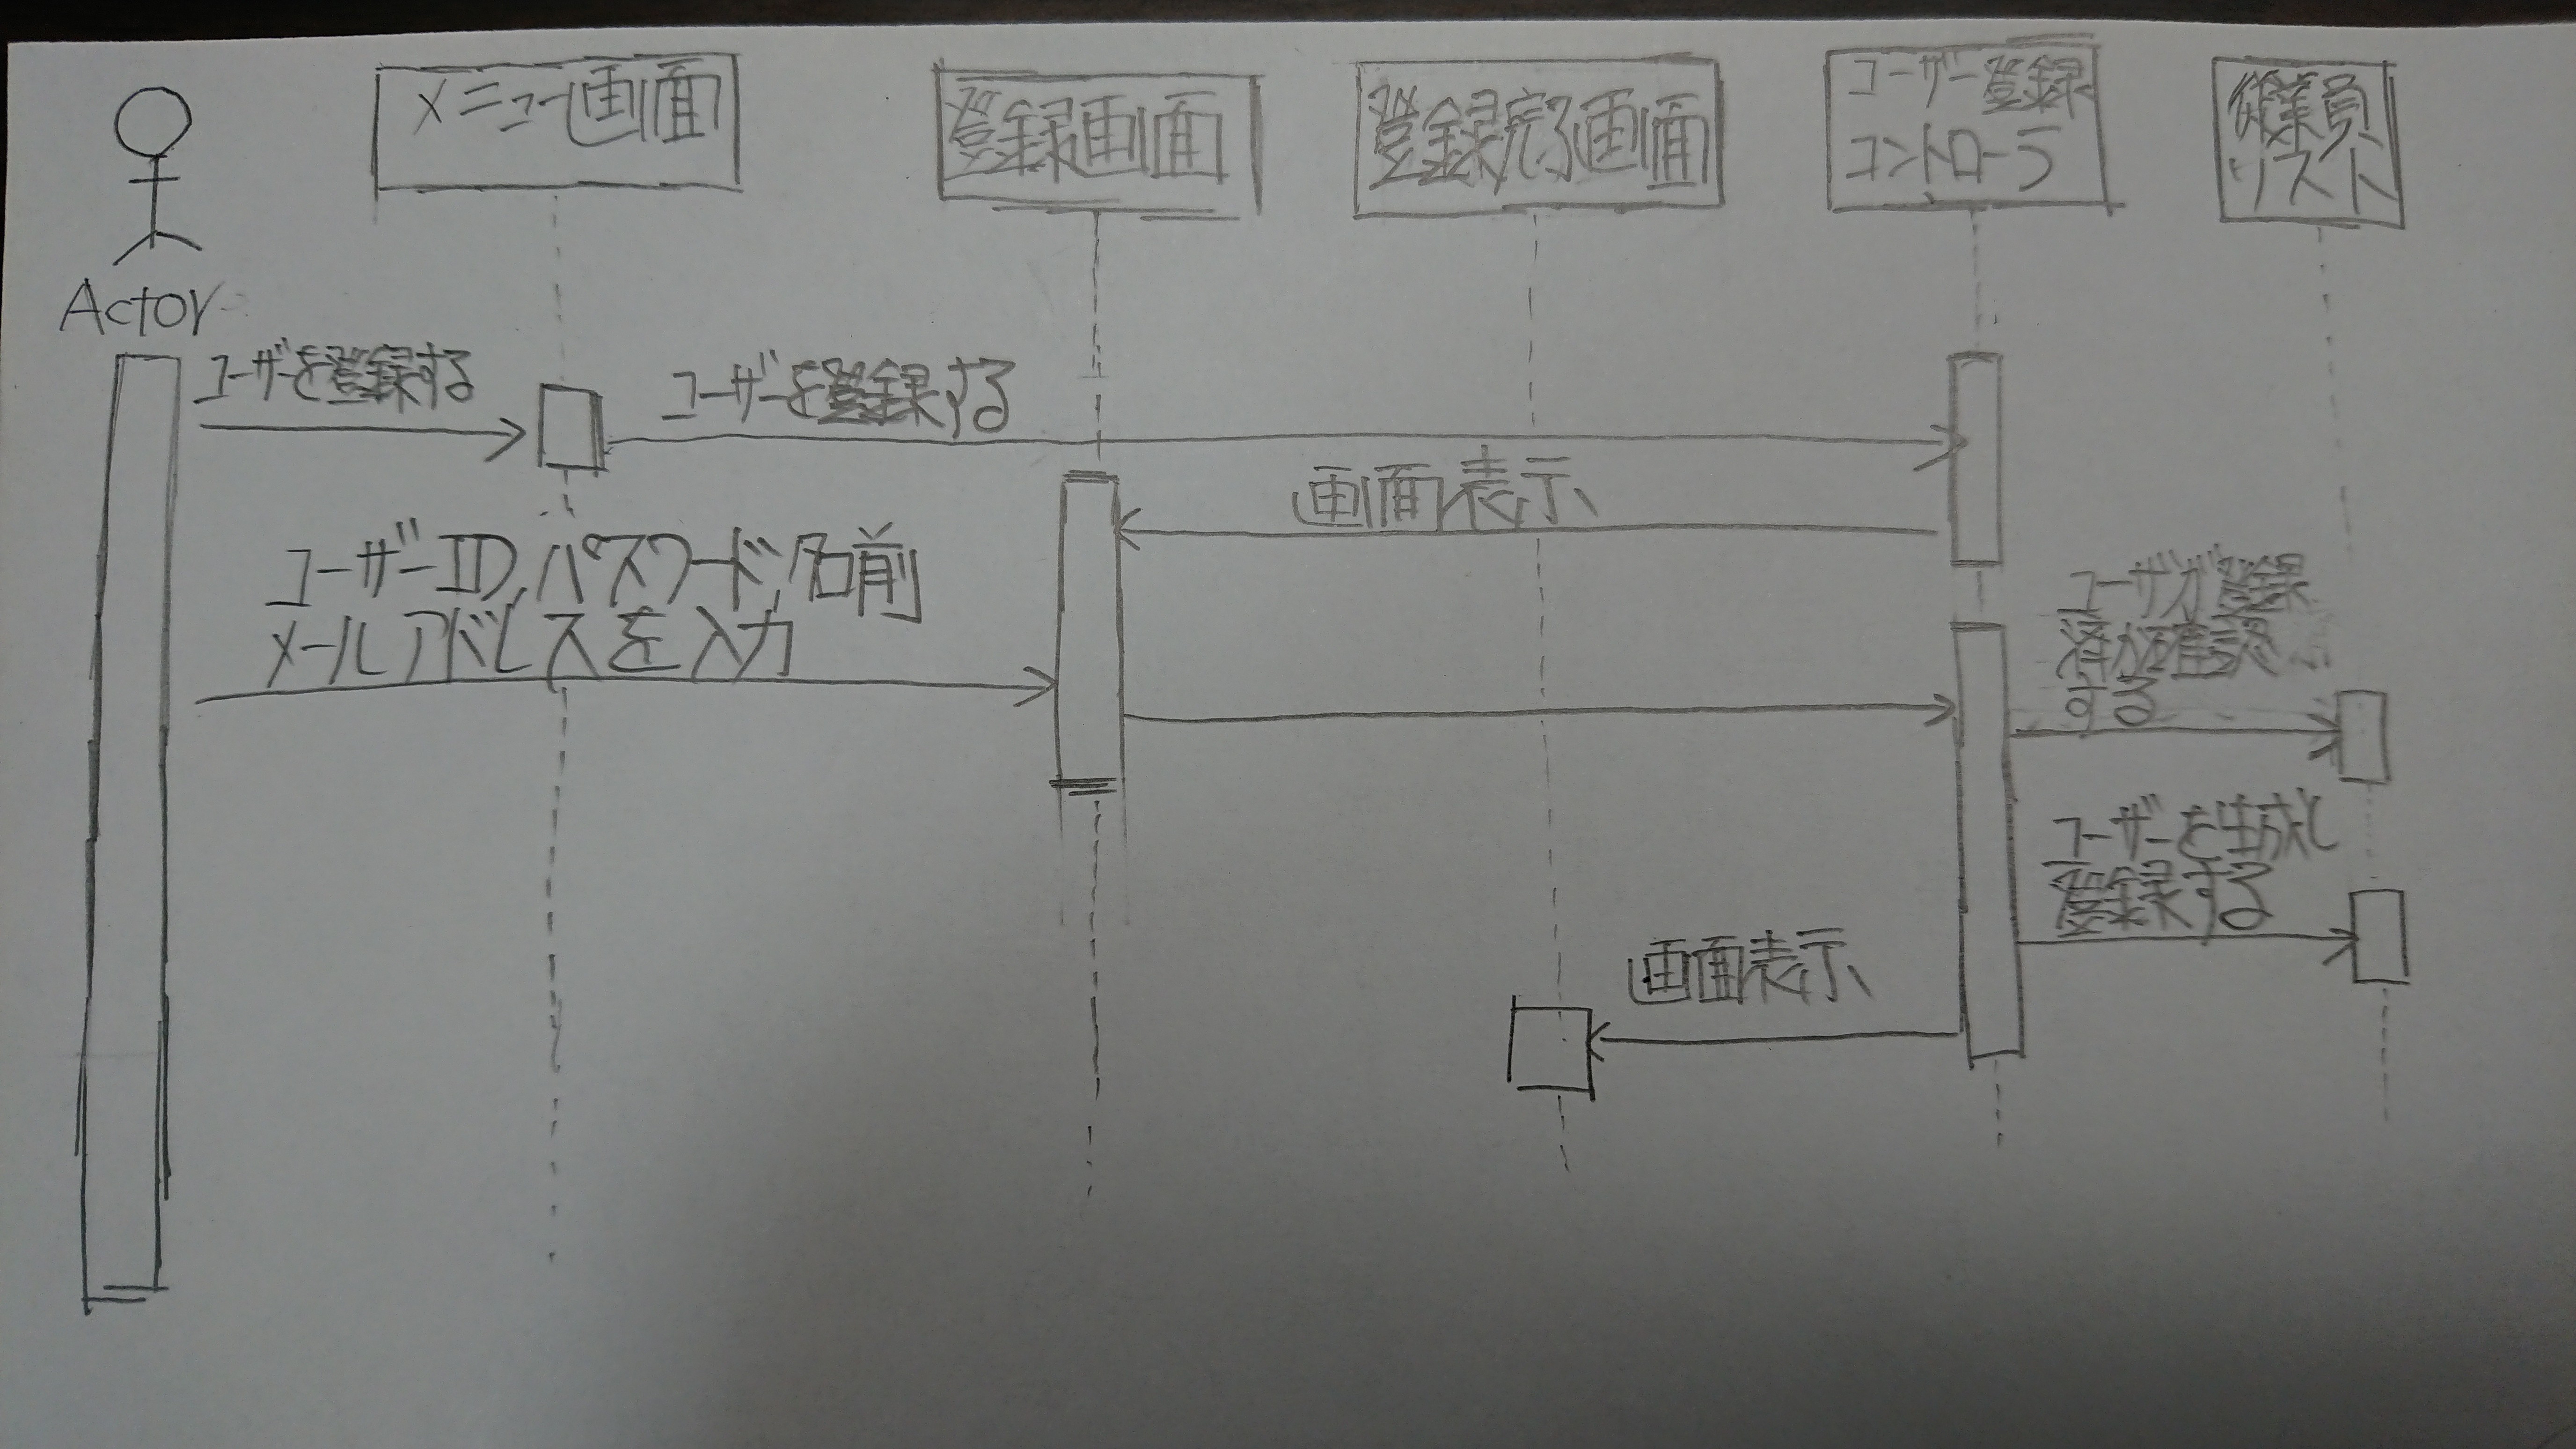 メニュー画面
登録画面
登録完了画面
ユーザー登録
コントローラ
従業員
リスト
Actor
ユーザを登録する
ユーザーを登録する
画面表示
ユーザーID,パスワード,名前
メールアドレスを入力
ユーザが登録
済か確認
する
ユーザーを生成し
登録する
画面表示